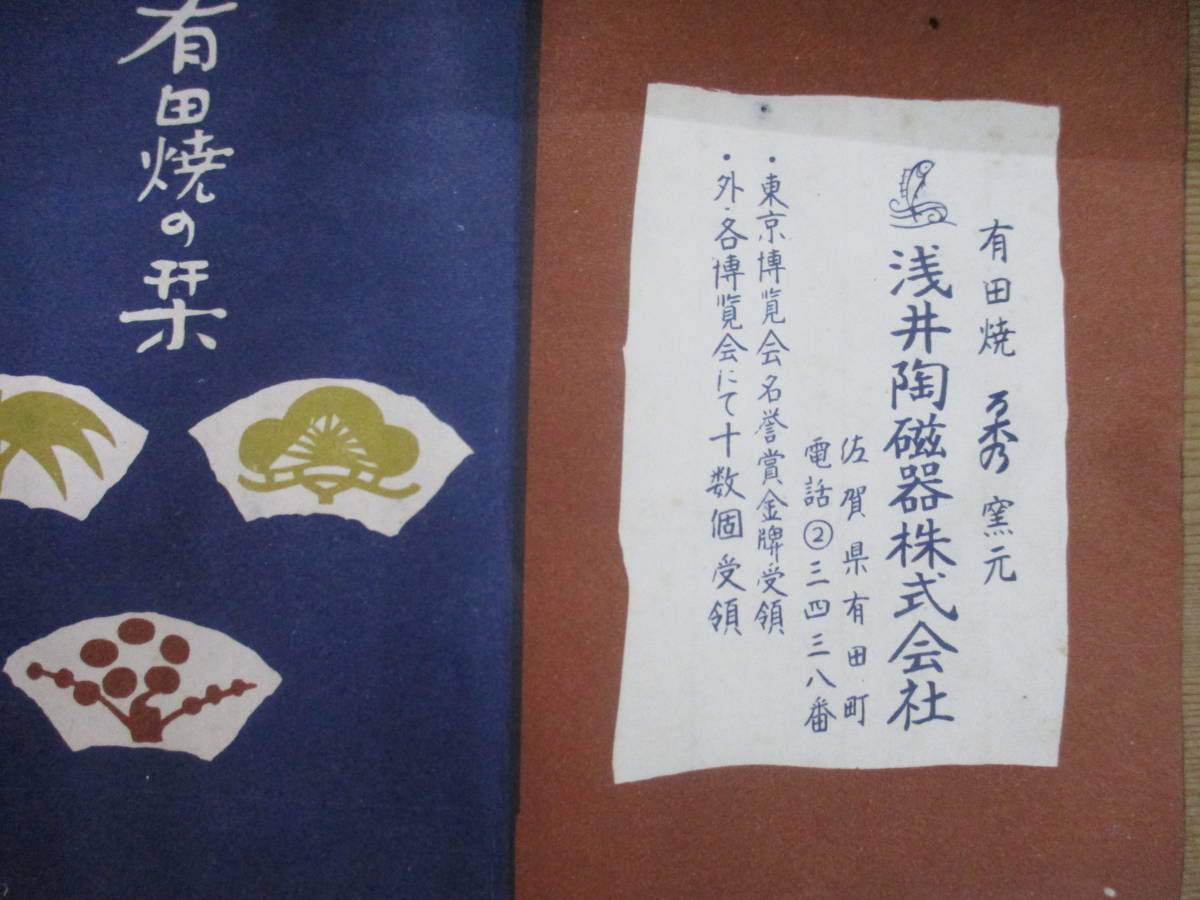 有田焼 万秀 窯元
浅井陶磁器株式会社
佐賀県有田町
電話②三四三八番
・東京博覧会名誉賞金牌受領
・外・各博覧会にて十数個受領
有田焼の栞